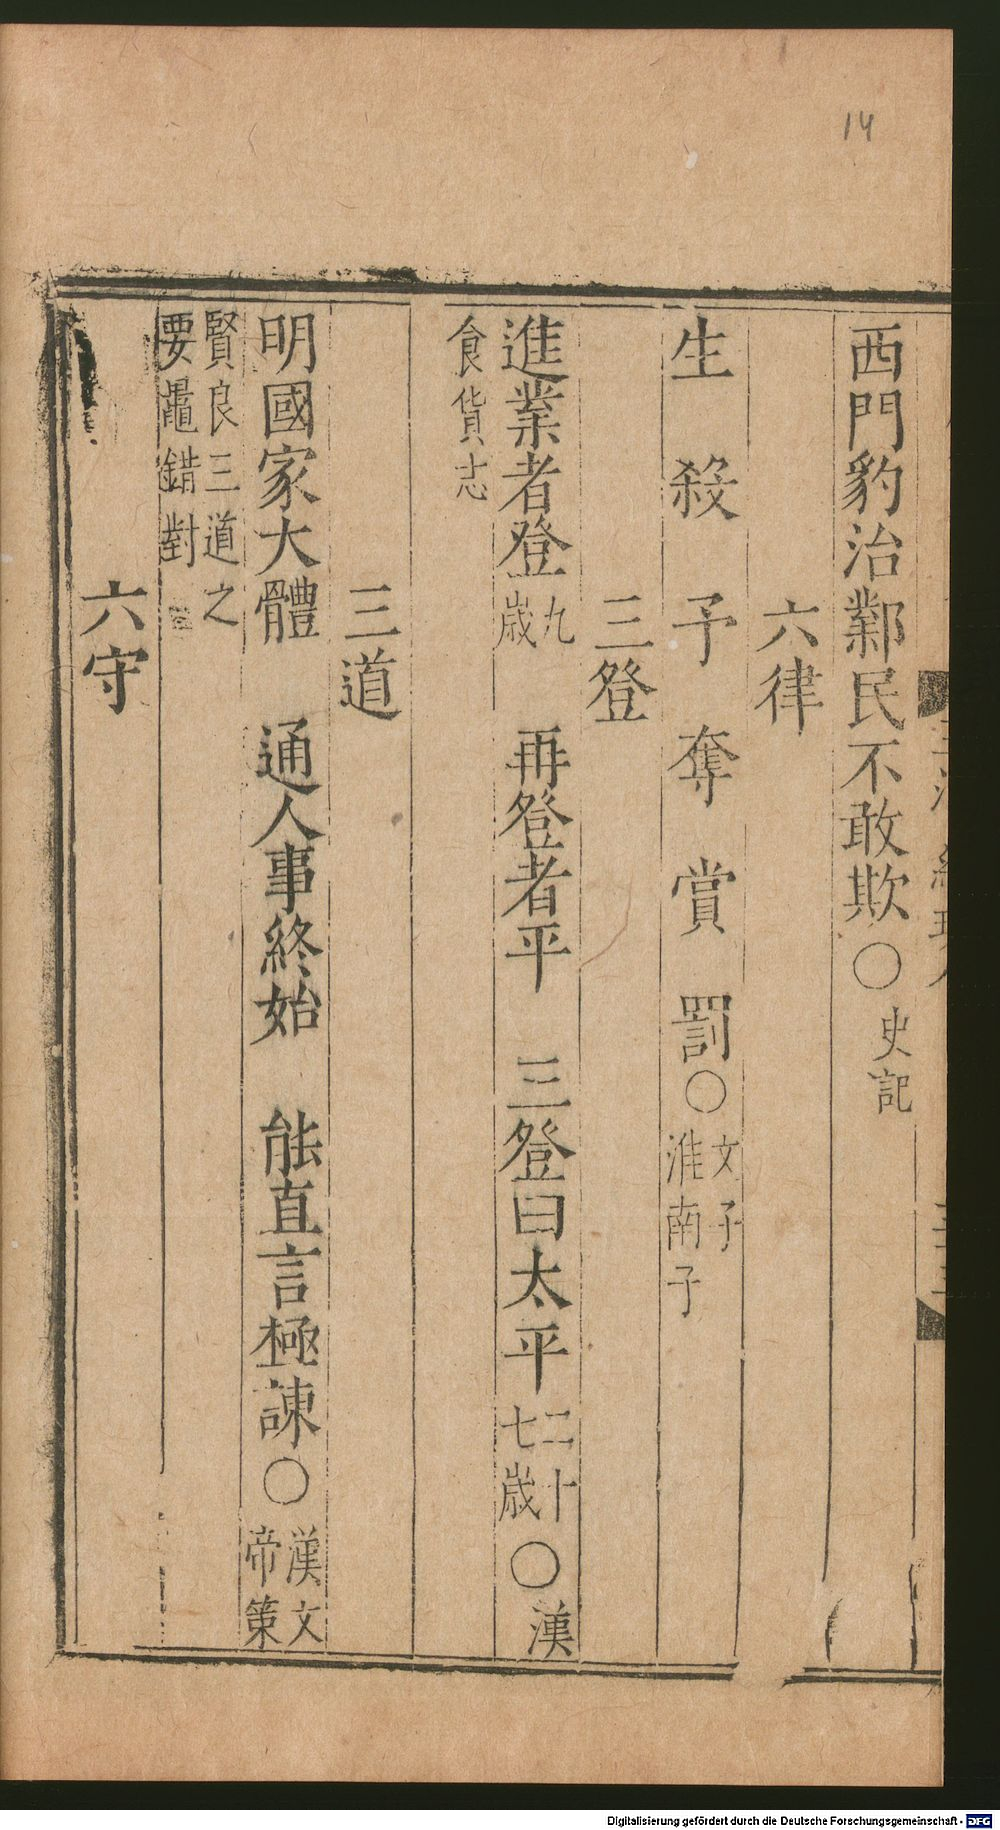 14
西門豹治鄴民不敢欺○史記
六律
生殺予奪賞罰○文子淮南子
三登
進業者登九歲 再登者平 三登曰太平二十七歲○漢
食貨志
三道
明國家大體 通人事終始 能直言極諫○漢文帝策
賢良三道之要鼂錯對
六守
Digitalisierung gefördert durch die Deutsche Forschungsgemeinschaft - DFG